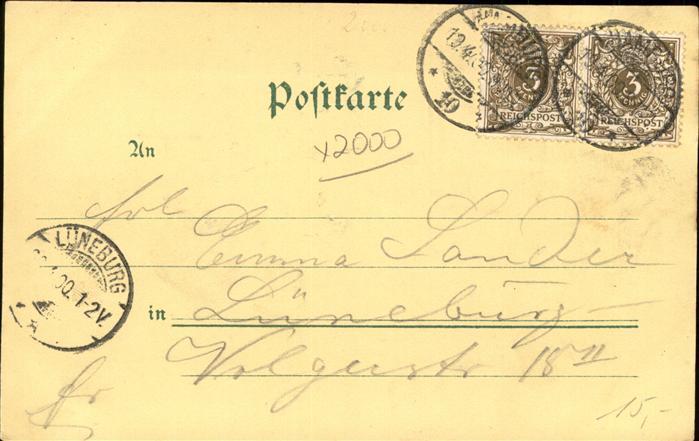 HAMBURG
3
REICHSPOST
3
REICHSPOST
Postkarte
x2000
An
frl
Emma Sander
LÜNEBURG
00.1-2V.
in Lüneburg
Volgerstr 18 II
fr
15,-